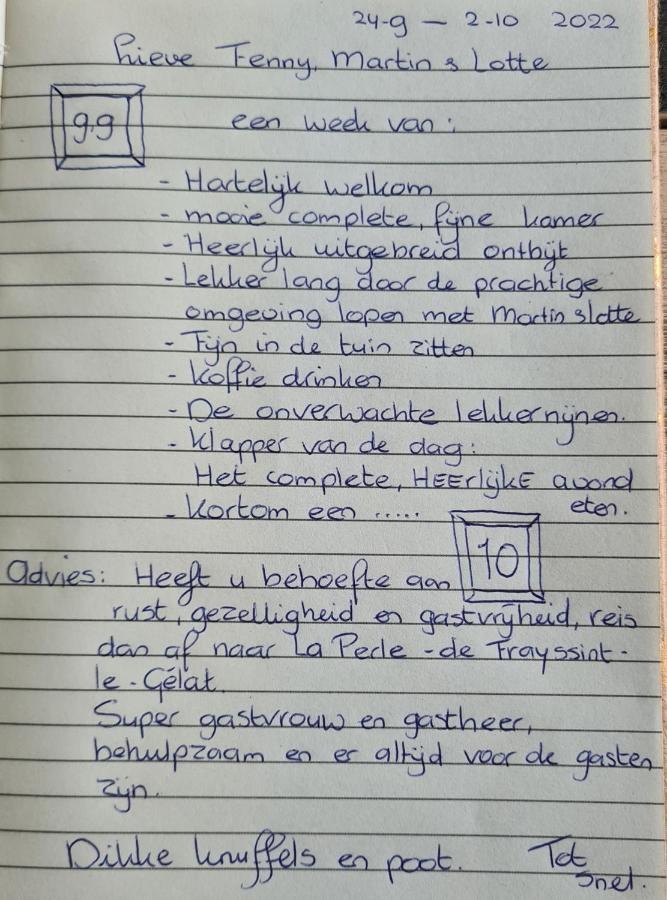 24-9 — 2-10 2022
Lieve Fenny, Martin & Lotte
9,9 een week van:
- Hartelijk welkom
- mooie complete, fijne kamer
- Heerlijk uitgebreid ontbijt
- Lekker lang door de prachtige
omgeving lopen met Martin & Lotte
- Fijn in de tuin zitten
- Koffie drinken
- De onverwachte lekkernijnen.
- Klapper van de dag:
Het complete, HEErlijkE avond
eten.
- Kortom een ..... 10
Advies: Heeft u behoefte aan
rust, gezelligheid en gastvrijheid, reis
dan af naar La Perle - de Frayssint -
le - Gélat.
Super gastvrouw en gastheer,
behulpzaam en er altijd voor de gasten
zijn.
Dikke knuffels en poot. Tot
snel.